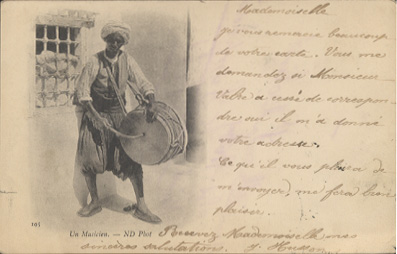 Mademoiselle
je vous remercie beaucoup
de votre carte. Vous me
demandez si Monsieur
a cessé de correspon-
dre oui il m'a donné
votre adresse.
Ce qu'il vous plaira de
m'envoyer, me fera bien
plaisir.
103
Un Musicien. — ND Phot
Recevez Mademoiselle mes
sincères salutations. J.